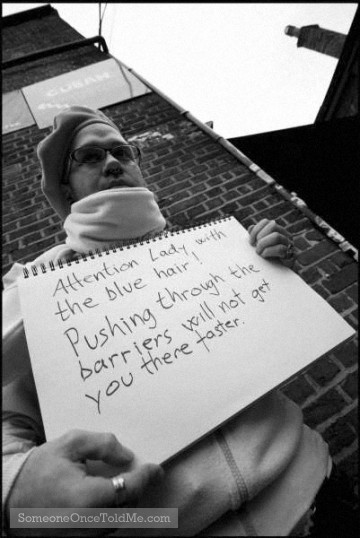 CUBAN
Attention Lady with
the blue hair!
Pushing through the
barriers will not get
you there faster.
SomeoneOnceToldMe.com